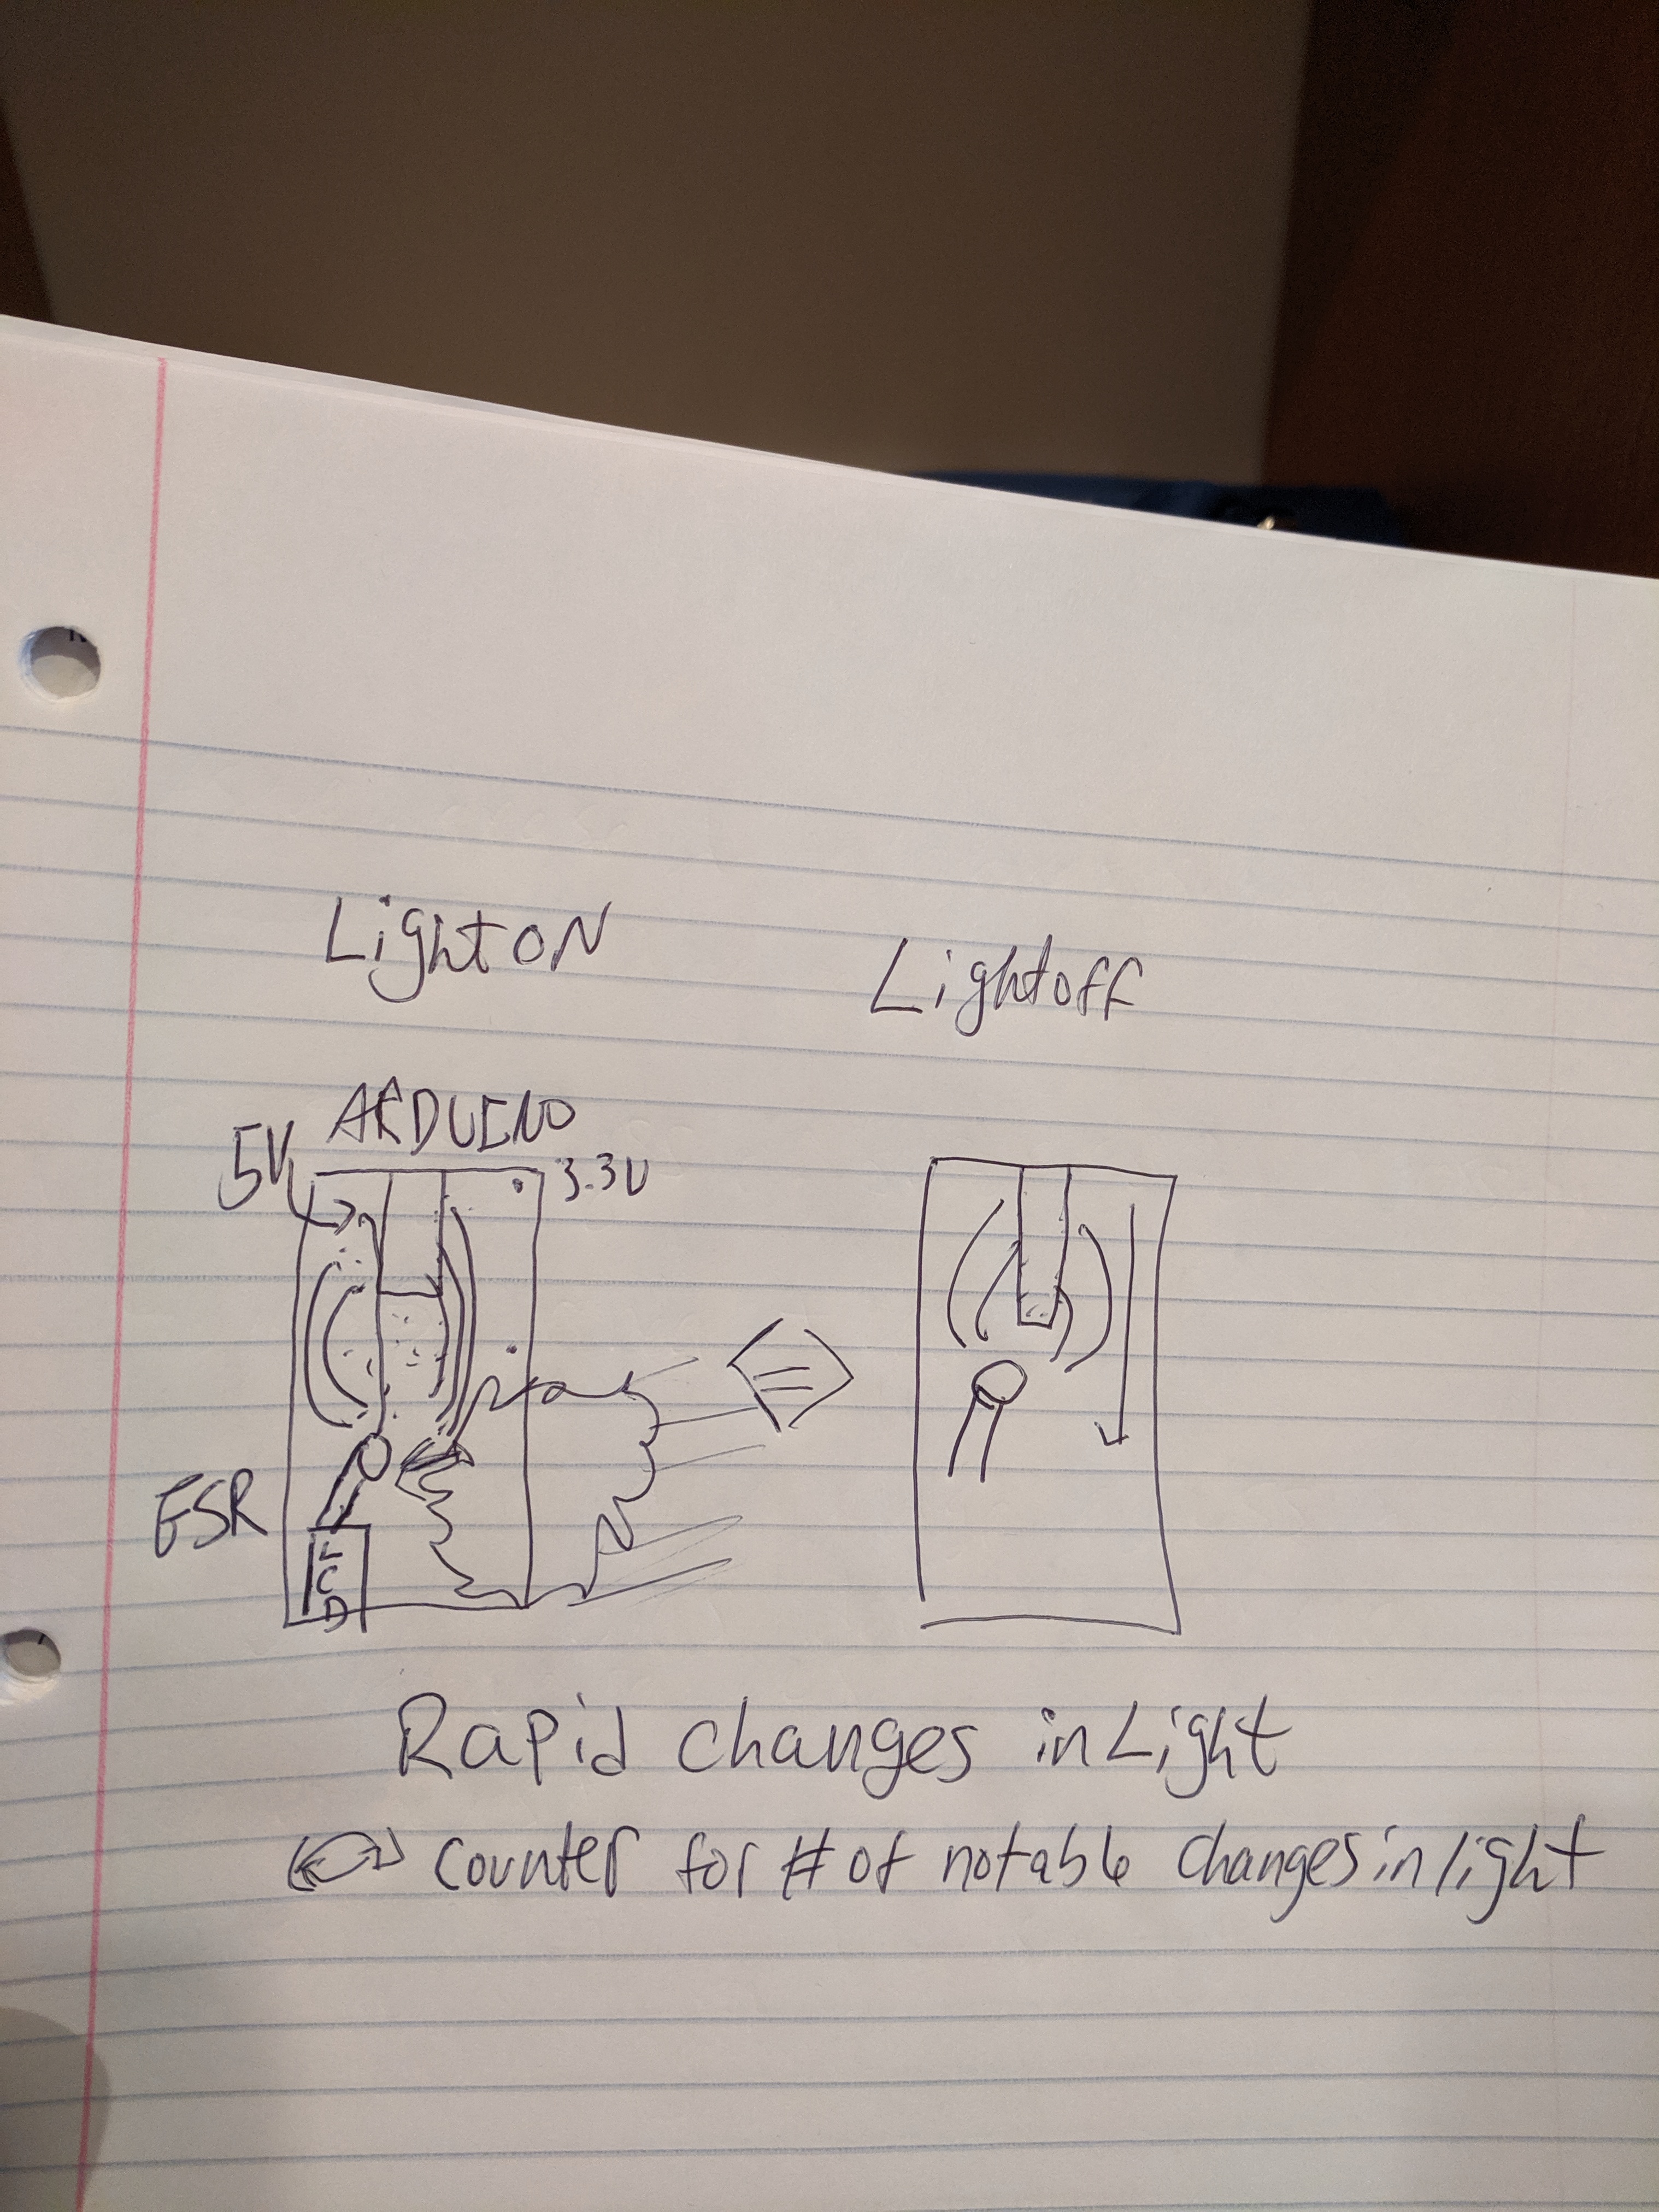 Light ON
Light off
ARDUINO
5V
3.3V
ESR
LCD
Rapid changes in Light
counter for # of notable changes in light